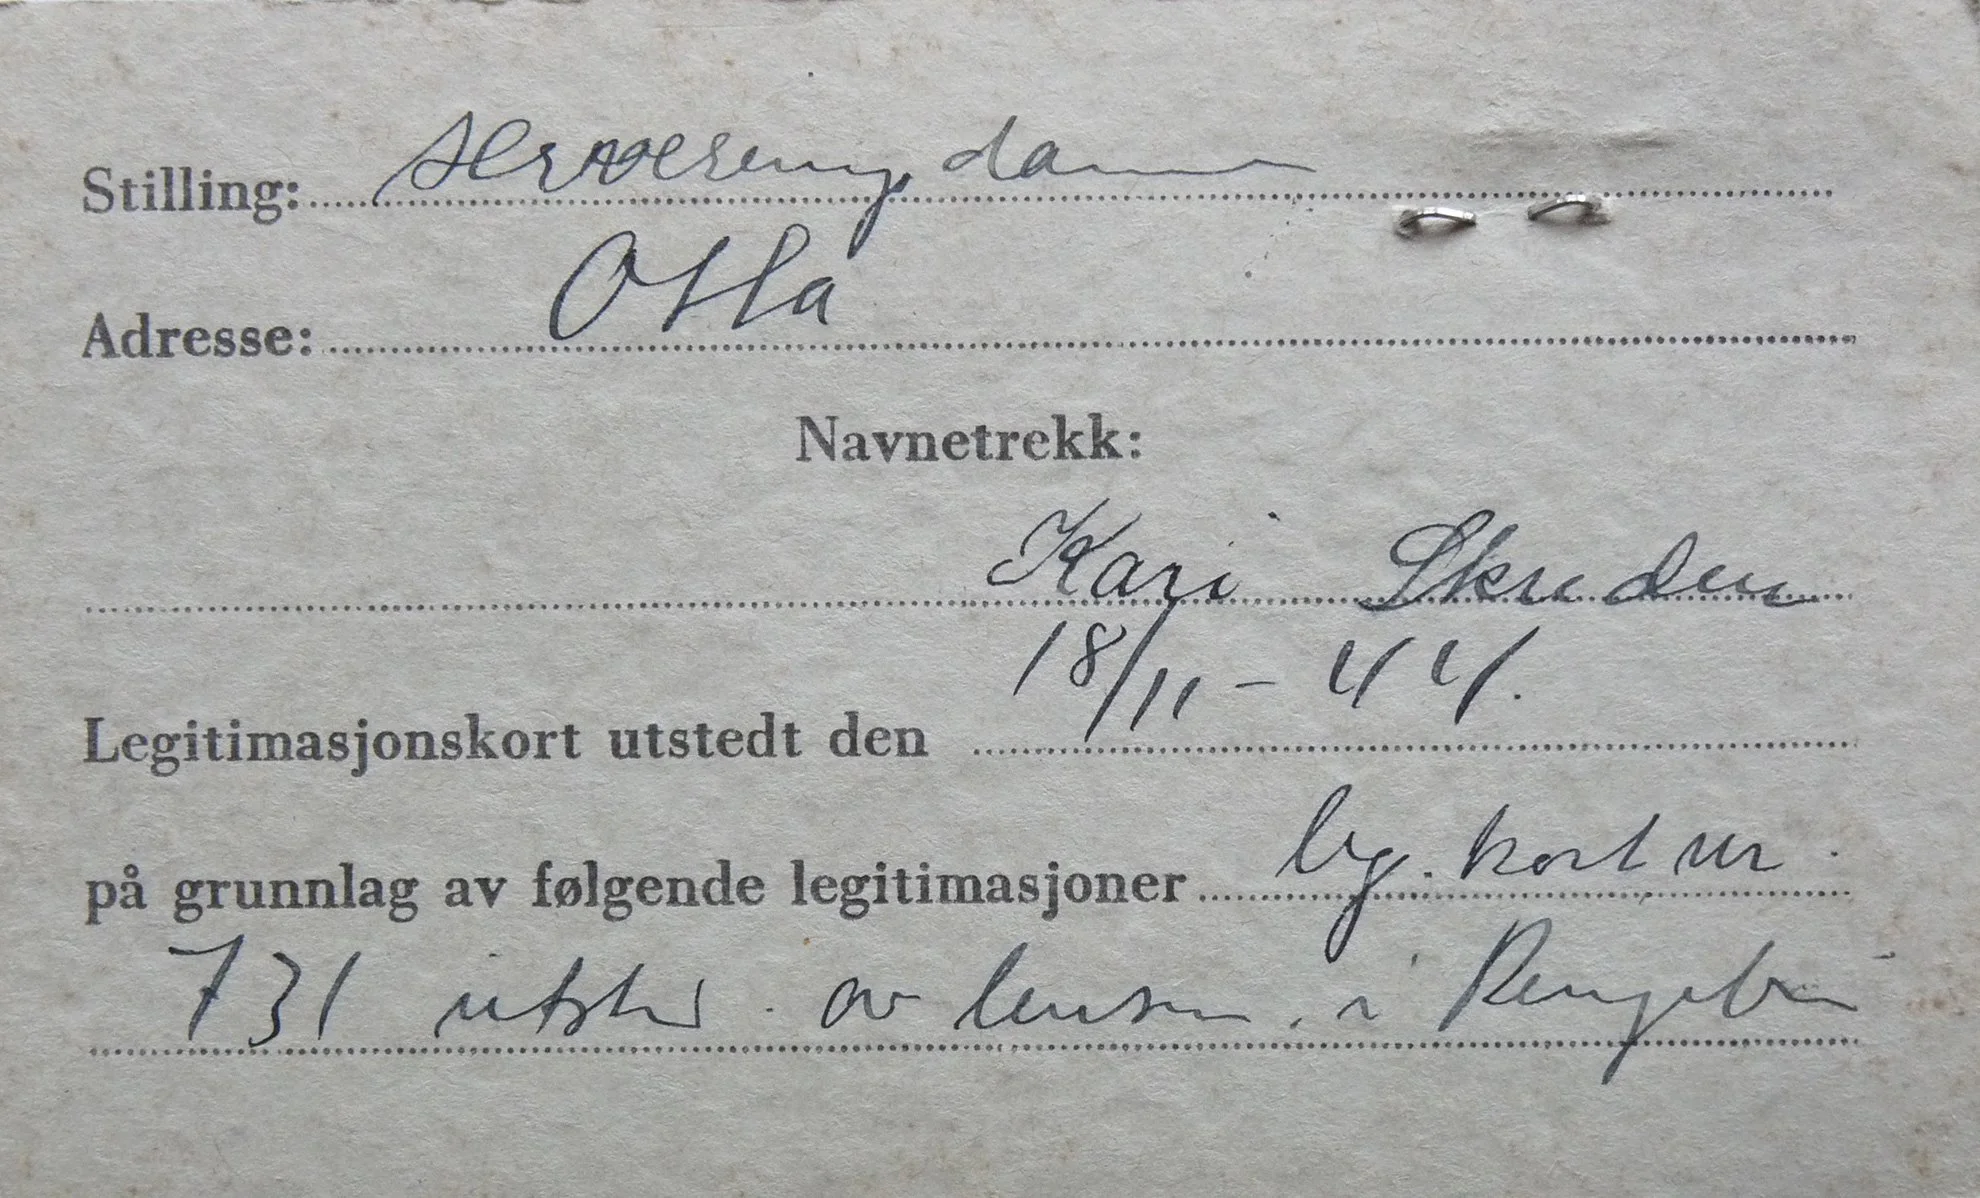 Stilling: serveringsdame
Adresse: Otta
Navnetrekk:
Kari Skruden
Legitimasjonskort utstedt den 18/11 - 44.
på grunnlag av følgende legitimasjoner leg. kort nr.
731 utsted. av lensm. i Ringebu